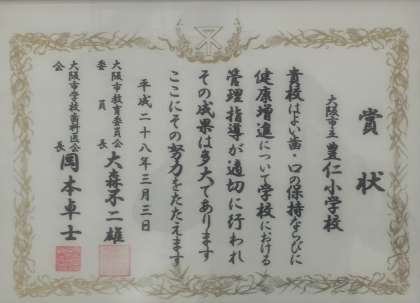 賞状
大阪市立 豊仁小学校
貴校はよい歯・口の保持ならびに
健康増進について学校における
管理指導が適切に行われ
その成果は多大であります
ここにその努力をたたえます
平成二十八年三月三日
大阪市教育委員会
委員長 大森不二雄
大阪市学校歯科医会
会長 岡本卓士